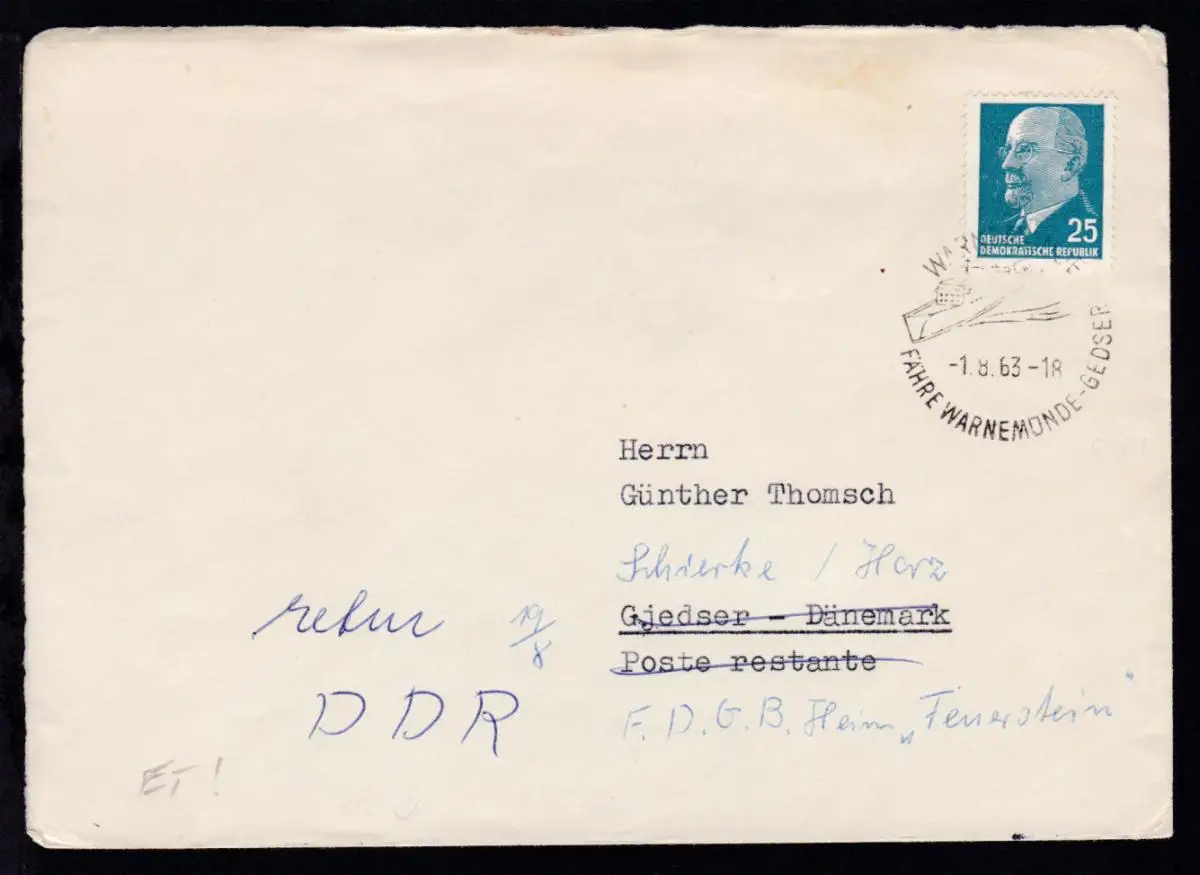 25
DEUTSCHE
DEMOKRATISCHE REPUBLIK
-1.8.63-18
FÄHRE WARNEMÜNDE-GEDSER
Herrn
Günther Thomsch
Schierke / Harz
Gjedser - Dänemark
retur 19/8
Poste restante
DDR
F.D.G.B. Heim „Feuerstein"
ET!